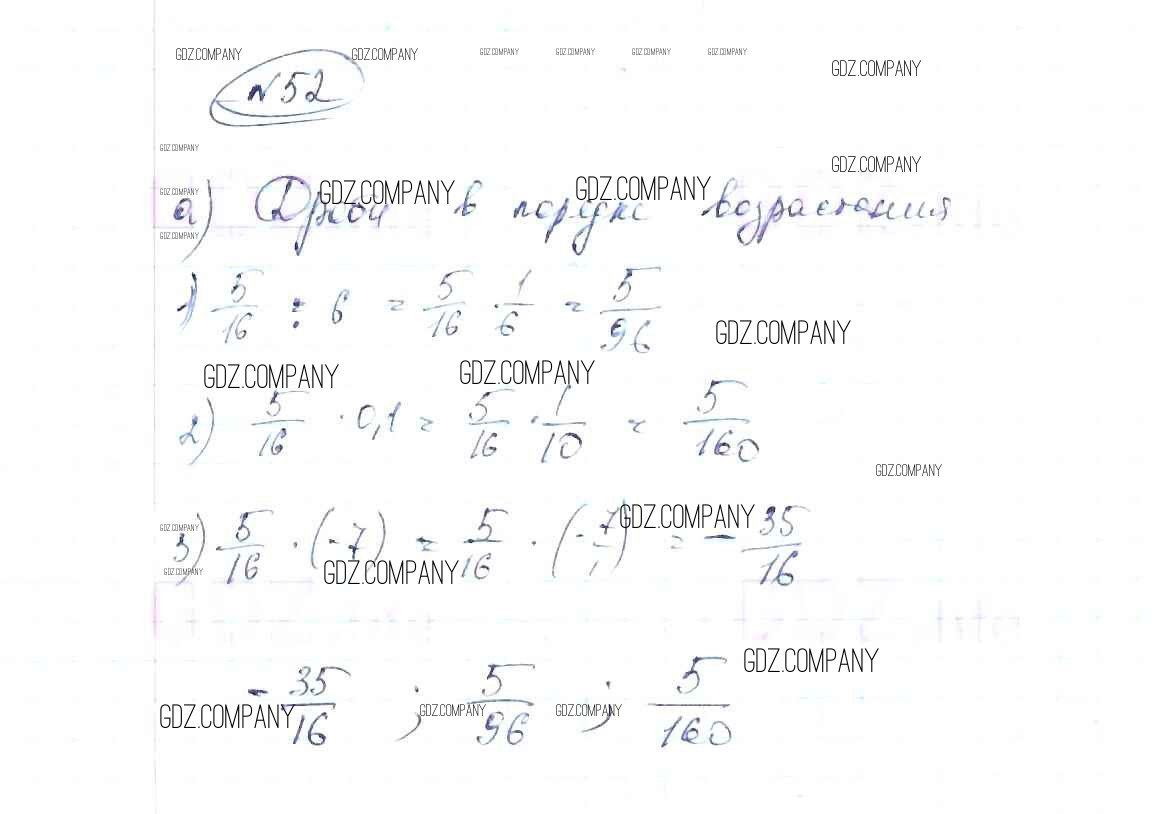 GDZ.COMPANY GDZ.COMPANY GDZ.COMPANY GDZ.COMPANY GDZ.COMPANY GDZ.COMPANY GDZ.COMPANY
№52
GDZ.COMPANY GDZ.COMPANY
GDZ.COMPANY GDZ.COMPANY GDZ.COMPANY
а) в порядке возрастания
GDZ.COMPANY
1) 5/16 : 6 = 5/16 · 1/6 = 5/96
GDZ.COMPANY
GDZ.COMPANY GDZ.COMPANY
2) 5/16 · 0,1 = 5/16 · 1/10 = 5/160
GDZ.COMPANY
GDZ.COMPANY GDZ.COMPANY
3) 5/16 · (-7) = 5/16 · (-7/1) = -35/16
GDZ.COMPANY GDZ.COMPANY
GDZ.COMPANY
-35/16 ; 5/96 ; 5/160
GDZ.COMPANY GDZ.COMPANY GDZ.COMPANY